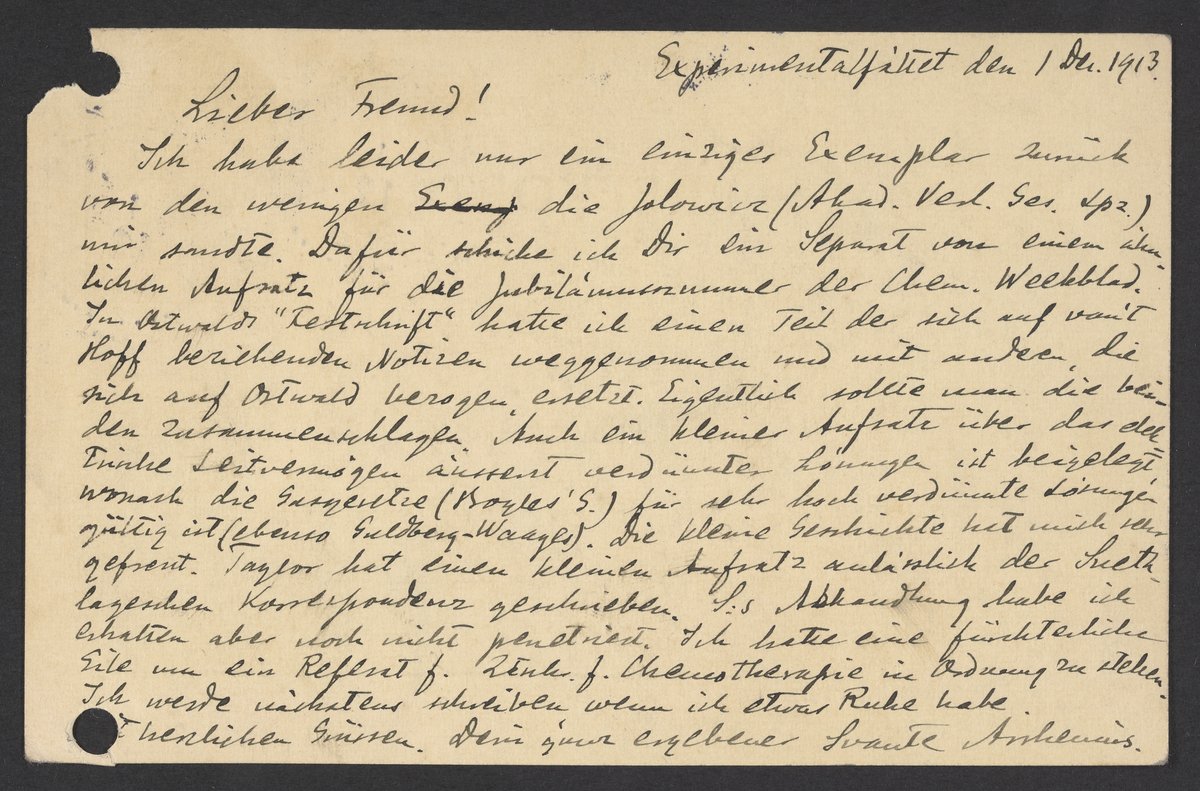 Experimentalfältet den 1 Dec. 1913.
Lieber Freund!
Ich habe leider nur ein einziges Exemplar zurück
von den wenigen Exemp die Jolowicz (Akad. Verl. Ges. Lpz.)
mir sandte. Dafür schicke ich Dir ein Separat von einem ähn-
lichen Aufsatz für die Jubiläumsnummer der Chem. Weekblad.
In Ostwalds "Festschrift" hatte ich einen Teil der sich auf van't
Hoff beziehenden Notizen weggenommen und mit andern, die
sich auf Ostwald bezogen, ersetzt. Eigentlich sollte man die bei-
den zusammenschlagen. Auch ein kleiner Aufsatz über das elek-
trische Leitvermögen äusserst verdünnter Lösungen ist beigelegt,
wonach die Gasgesetze (Boyles' G.) für sehr hoch verdünnte Lösungen
gültig ist (ebenso Guldberg-Waages). Die kleine Geschichte hat mich sehr
gefreut. Taylor hat einen kleinen Aufsatz anlässlich der Sneth-
lageschen Korrespondenz geschrieben. S:s Abhandlung habe ich
erhalten aber noch nicht penetriert. Ich hatte eine fürchterliche
Eile um ein Referat f. Zeitschr. f. Chemotherapie in Ordnung zu stellen.
Ich werde nächstens schreiben wenn ich etwas Ruhe habe.
t herzlichen Grüssen. Dein ganz ergebener Svante Arrhenius.